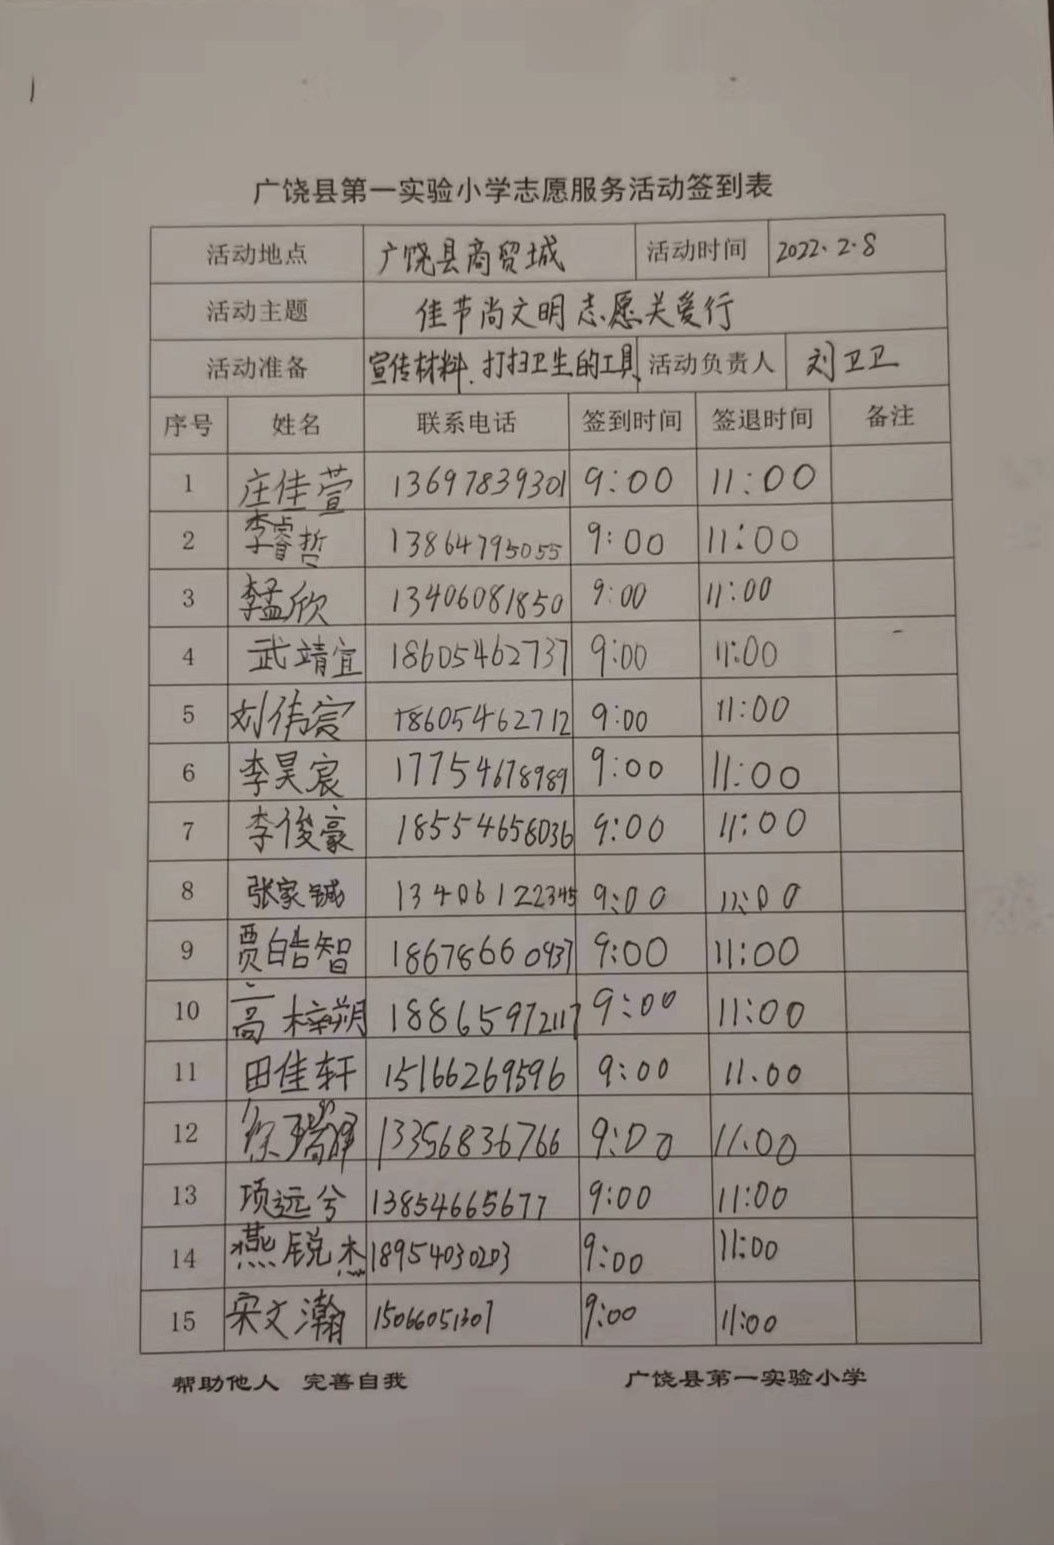 广饶县第一实验小学志愿服务活动签到表
活动地点 广饶县商贸城 活动时间 2022.2.8
活动主题 佳节尚文明志愿关爱行
活动准备 宣传材料、打扫卫生的工具 活动负责人 刘卫卫
序号 姓名 联系电话 签到时间 签退时间 备注
1 庄佳萱 13697839301 9:00 11:00
2 李睿哲 13864795055 9:00 11:00
3 李孟欣 13406081850 9:00 11:00
4 武靖宜 18605462737 9:00 11:00
5 刘伟宸 18605462712 9:00 11:00
6 李昊宸 17754678989 9:00 11:00
7 李俊豪 18554658036 9:00 11:00
8 张家铖 13406122345 9:00 11:00
9 贾皓智 18678660937 9:00 11:00
10 高梓朔 18865972117 9:00 11:00
11 田佳轩 15166269596 9:00 11.00
12 徐瑞泽 13356836766 9:00 11.00
13 项远兮 13854665677 9:00 11:00
14 燕锐杰 18954030203 9:00 11:00
15 宋文瀚 15066051307 9:00 11:00
帮助他人 完善自我 广饶县第一实验小学